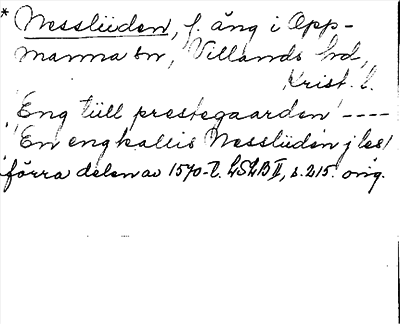 * Nesslüden, f. äng i Opp-
manna sn, Villands hd,
Krist. l.
'Eng tüll prestegaarden' ----
'En eng kallis Nesslüden j les'
förra delen av 1570-t. LSLB II, s. 215. orig.